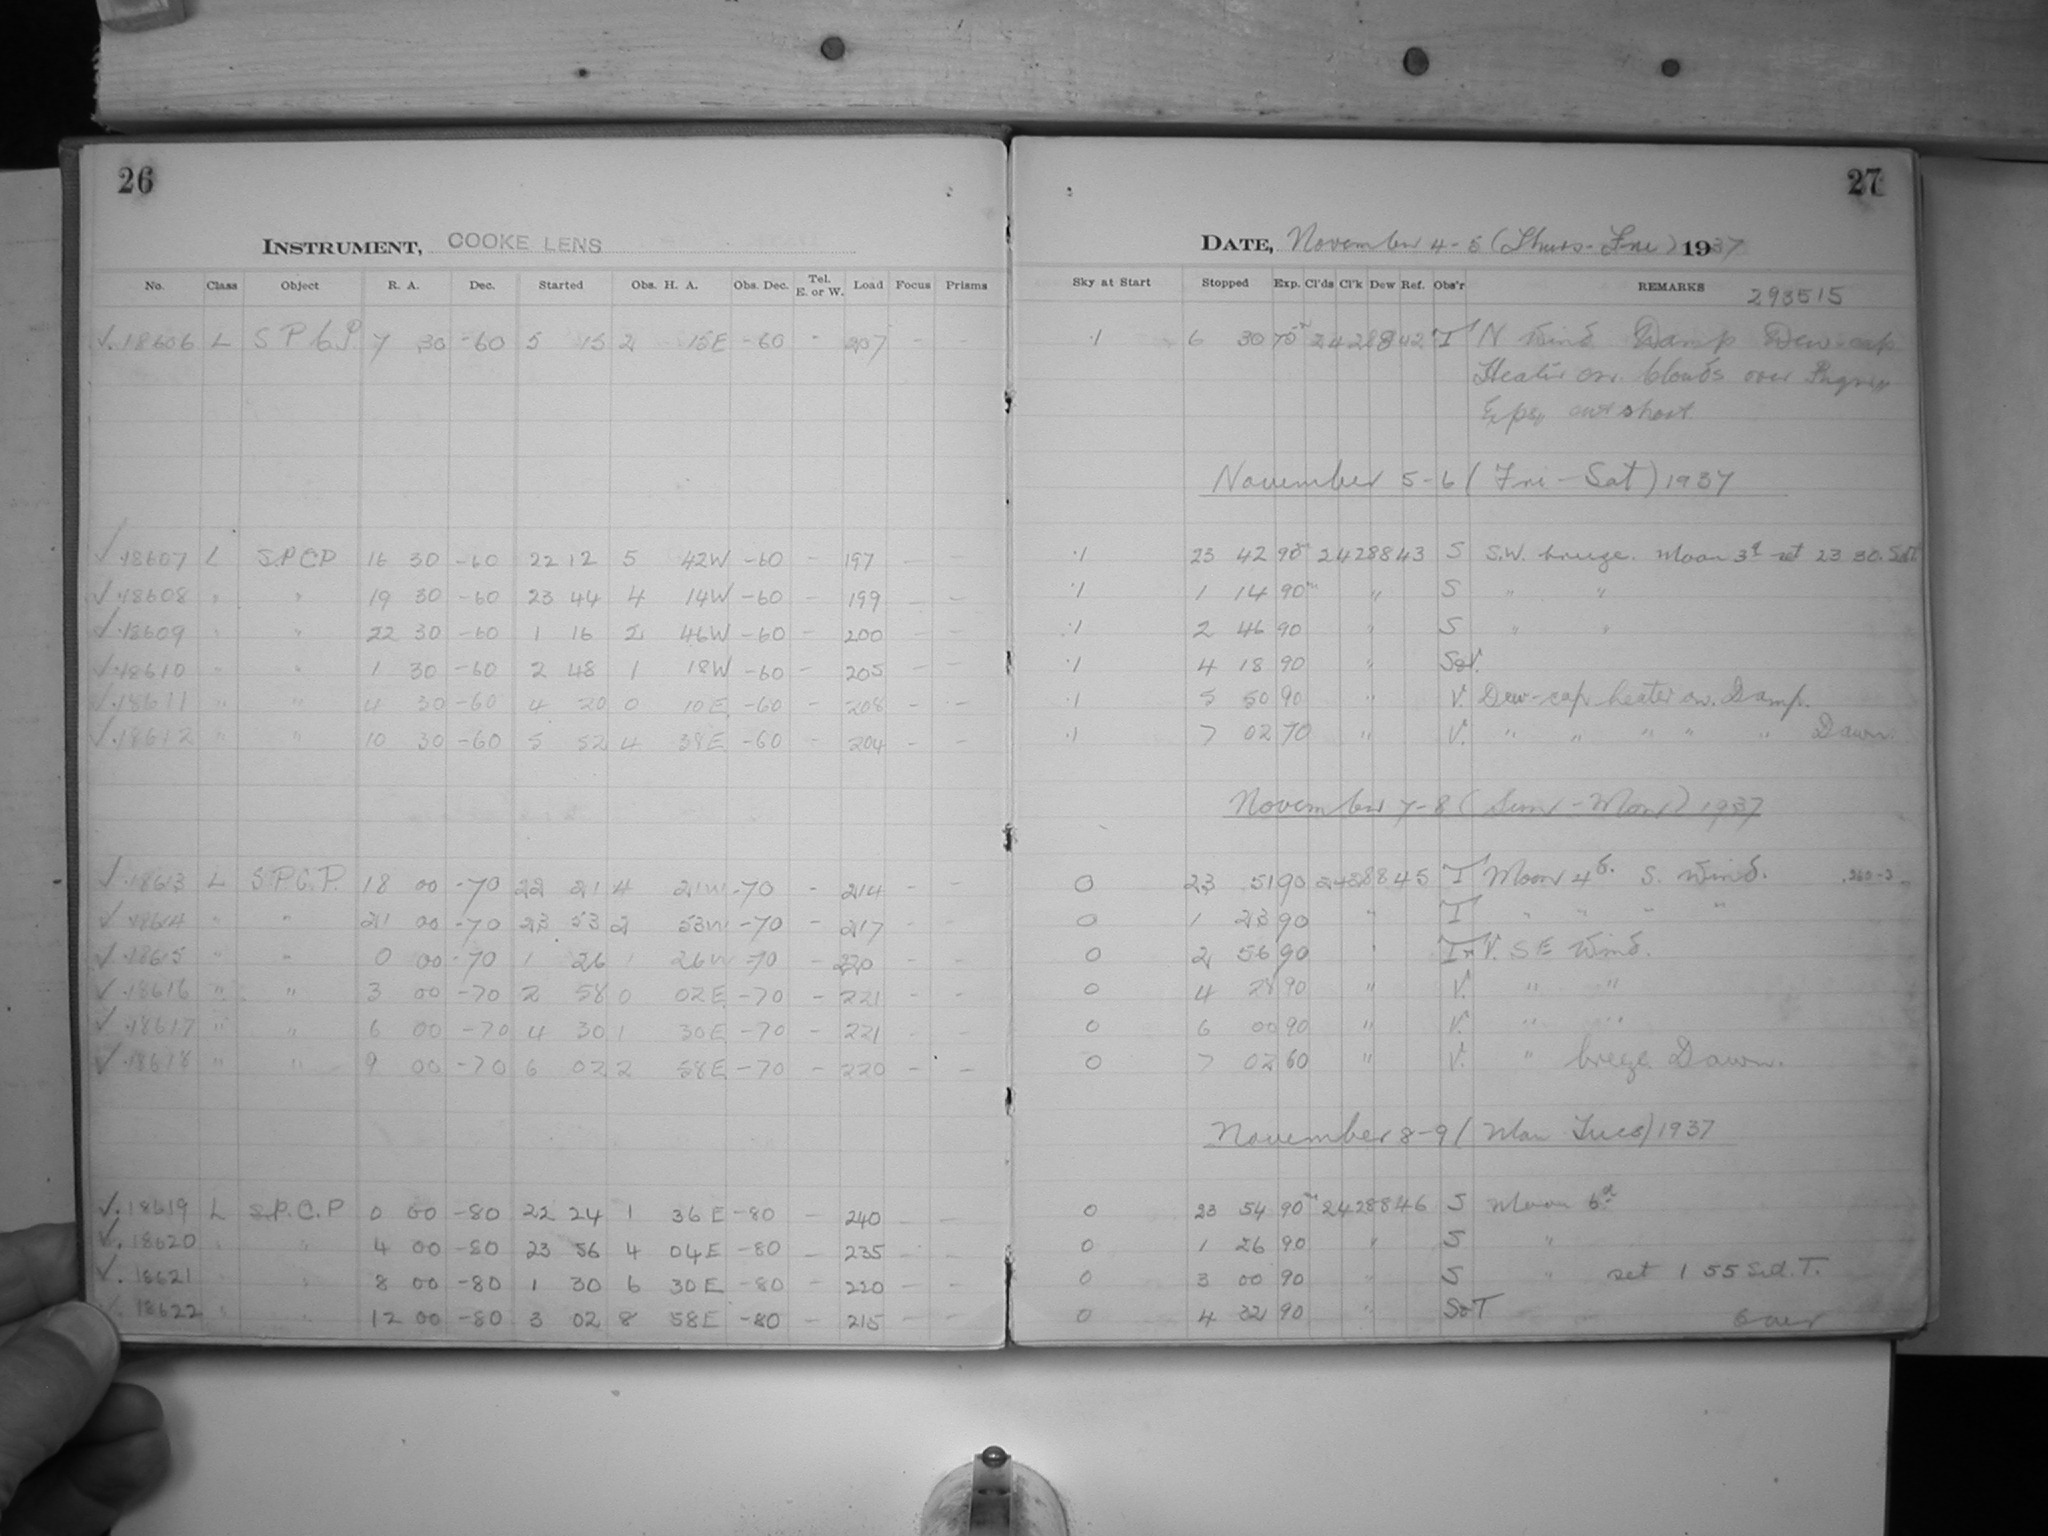 26
INSTRUMENT, COOKE LENS
No. Class Object R. A. Dec. Started Obs. H. A. Obs. Dec. Tel. E. or W. Load Focus Prisms
√.18606 L S P C P 7 30 -60 5 15 2 15E -60 - 207 - -
√.18607 L S.P.C.P 16 30 -60 22 12 5 42W -60 - 197 - -
√.18608 " " 19 30 -60 23 44 4 14W -60 - 199 - -
√.18609 " " 22 30 -60 1 16 2 46W -60 - 200 - -
√.18610 " " 1 30 -60 2 48 1 18W -60 - 205 - -
√.18611 " " 4 30 -60 4 20 0 10E -60 - 208 - -
√.18612 " " 10 30 -60 5 52 4 38E -60 - 204 - -
√.18613 L S.P.C.P. 18 00 -70 22 21 4 21W -70 - 214 - -
√.18614 " " 21 00 -70 23 53 2 53W -70 - 217 - -
√.18615 " " 0 00 -70 1 26 1 26W -70 - 220 - -
√.18616 " " 3 00 -70 2 58 0 02E -70 - 221 - -
√.18617 " " 6 00 -70 4 30 1 30E -70 - 221 - -
√.18618 " " 9 00 -70 6 02 2 58E -70 - 220 - -
√.18619 L S.P.C.P 0 00 -80 22 24 1 36E -80 - 240 - -
√.18620 " " 4 00 -80 23 56 4 04E -80 - 235 - -
√.18621 " " 8 00 -80 1 30 6 30E -80 - 220 - -
√.18622 " " 12 00 -80 3 02 8 58E -80 - 215 - -
27
DATE, November 4-5 (Thurs-Fri) 1937
Sky at Start Stopped Exp. Cl'ds Cl'k Dew Ref. Obs'r REMARKS 293515
.1 6 30 75m 2428842 T N Wind Damp Dew-cap
Heater on. Clouds over Region
Expo cut short
November 5-6 (Fri-Sat) 1937
.1 23 42 90m 2428843 S S.W. breeze. Moon 3d set 23 30. Sdt
.1 1 14 90m " S " "
.1 2 46 90 " S " "
.1 4 18 90 " S&V.
.1 5 50 90 " V. Dew-cap heater on. Damp.
.1 7 02 70 " V. " " " " " Dawn.
November 7-8 (Sun-Mon) 1937
0 23 51 90 2428845 T Moon 4d. S. Wind.
0 1 23 90 " T " " " "
0 2 56 90 " T&V. S E Wind.
0 4 28 90 " V. " "
0 6 00 90 " V. " "
0 7 02 60 " V. " breeze. Dawn.
November 8-9 (Mon Tues) 1937
0 23 54 90m 2428846 S Moon 6d
0 1 26 90 " S "
0 3 00 90 " S " set 1 55 Sid. T.
0 4 32 90 " S&T
Over